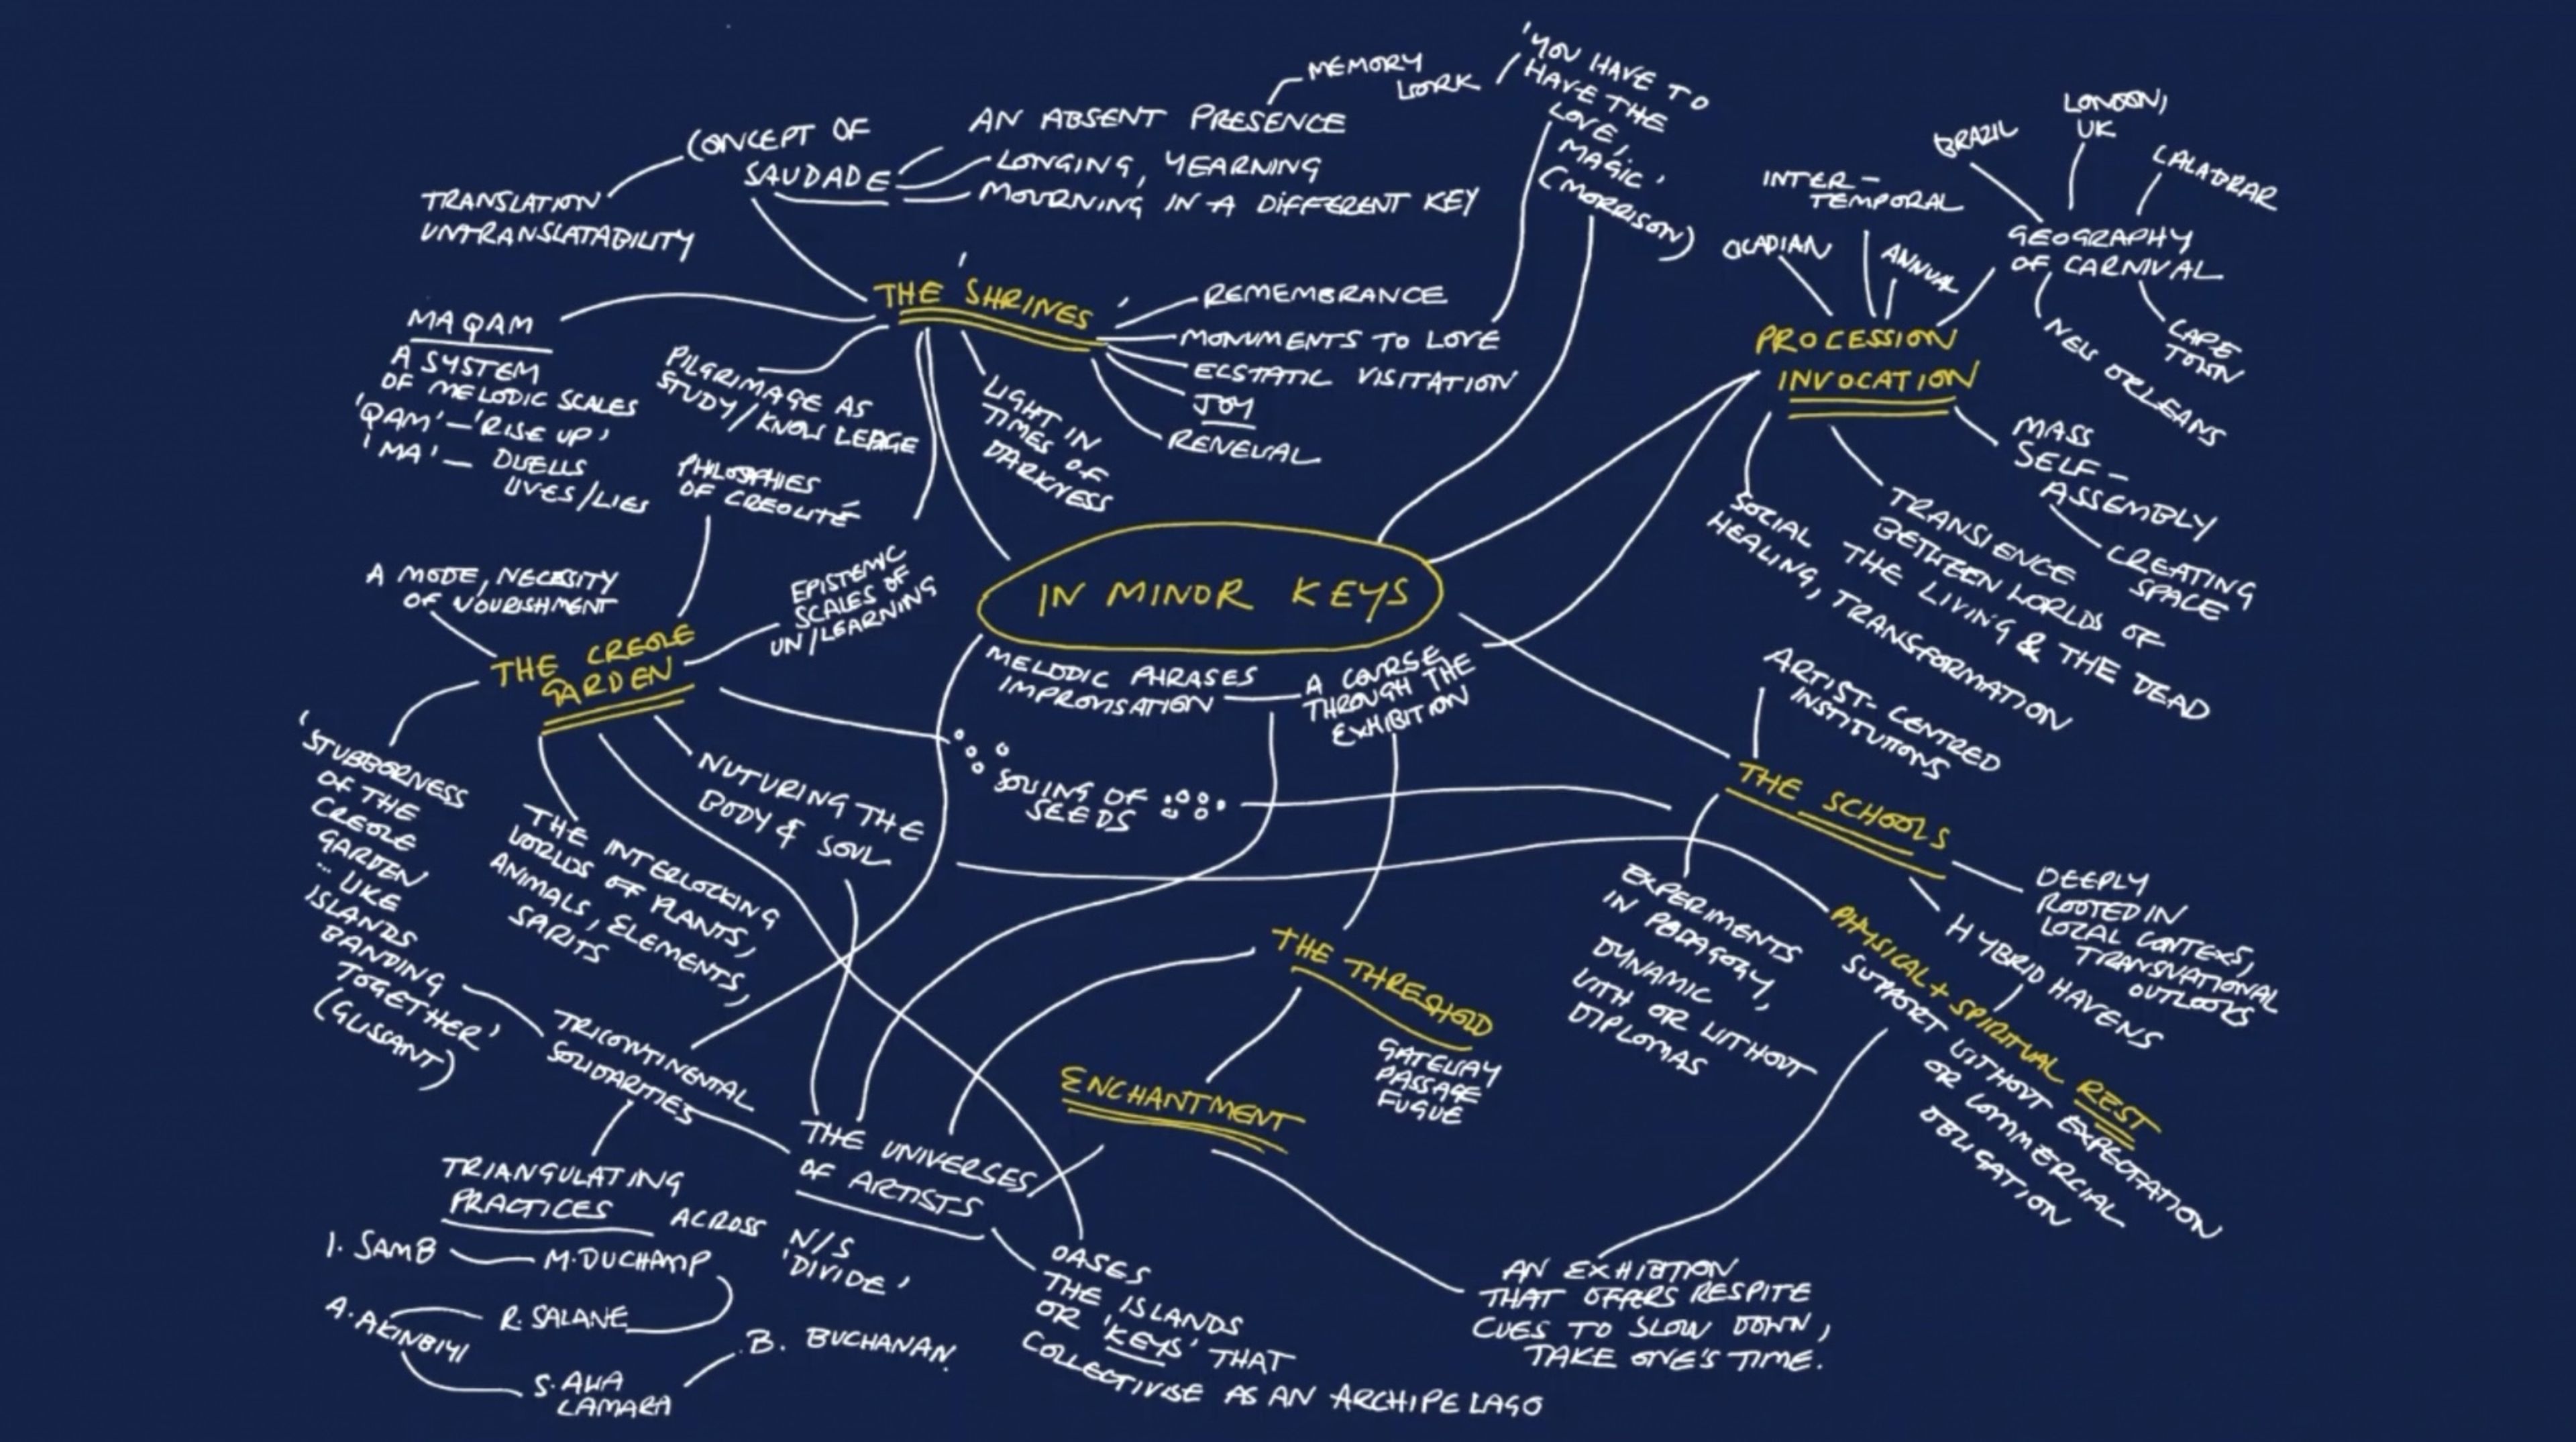 'YOU HAVE TO
HAVE THE
LOVE,
MAGIC'
(MORRISON)
MEMORY
WORK
CONCEPT OF
SAUDADE
AN ABSENT PRESENCE
LONGING, YEARNING
MOURNING IN A DIFFERENT KEY
TRANSLATION
UNTRANSLATABILITY
THE 'SHRINES'
REMEMBRANCE
MONUMENTS TO LOVE
ECSTATIC VISITATION
JOY
RENEWAL
LIGHT IN
TIMES OF
DARKNESS
PILGRIMAGE AS
STUDY/KNOWLEDGE
MAQAM
A SYSTEM
OF MELODIC SCALES
'QAM'—'RISE UP'
'MA'— DWELLS
LIVES/LIES
PHILOSPHIES
OF CREOLITÉ
EPISTEMIC
SCALES OF
UN/LEARNING
A MODE, NECESSITY
OF NOURISHMENT
THE CREOLE
GARDEN
'STUBBORNESS
OF THE
CREOLE
GARDEN
... LIKE
ISLANDS
BANDING
TOGETHER'
(GLISSANT)
THE INTERLOCKING
WORLDS OF PLANTS,
ANIMALS, ELEMENTS,
SPIRITS
NUTURING THE
BODY & SOUL
SOWING OF
SEEDS
IN MINOR KEYS
MELODIC PHRASES
IMPROVISATION
A COURSE
THROUGH THE
EXHIBITION
PROCESSION
INVOCATION
INTER-
TEMPORAL
ANNUAL
BRAZIL
LONDON,
UK
GEOGRAPHY
OF CARNIVAL
NEW ORLEANS
CAPE
TOWN
MASS
SELF-
ASSEMBLY
CREATING
SPACE
TRANSIENCE
BETWEEN WORLDS OF
THE LIVING & THE DEAD
SOCIAL
HEALING, TRANSFORMATION
ARTIST-CENTRED
INSTITUTIONS
THE SCHOOLS
DEEPLY
ROOTED IN
LOCAL CONTEXS,
TRANSNATIONAL
OUTLOOKS
HYBRID HAVENS
EXPERIMENTS
IN PEDAGOGY,
DYNAMIC
WITH OR WITHOUT
DIPLOMAS
PHYSICAL + SPIRITUAL REST
SUPPORT WITHOUT EXPECTATION
OR COMMERCIAL
OBLIGATION
THE THRESHOLD
GATEWAY
PASSAGE
FUGUE
ENCHANTMENT
TRICONTINENTAL
SOLIDARITIES
THE UNIVERSES
OF ARTISTS
TRIANGULATING
PRACTICES ACROSS N/S
'DIVIDE'
I. SAMB
M. DUCHAMP
A. AKINBIYI
R. SALANE
S. AWA
CAMARA
B. BUCHANAN
OASES
THE ISLANDS
OR 'KEYS' THAT
COLLECTIVISE AS AN ARCHIPELAGO
AN EXHIBITION
THAT OFFERS RESPITE
CUES TO SLOW DOWN,
TAKE ONE'S TIME.